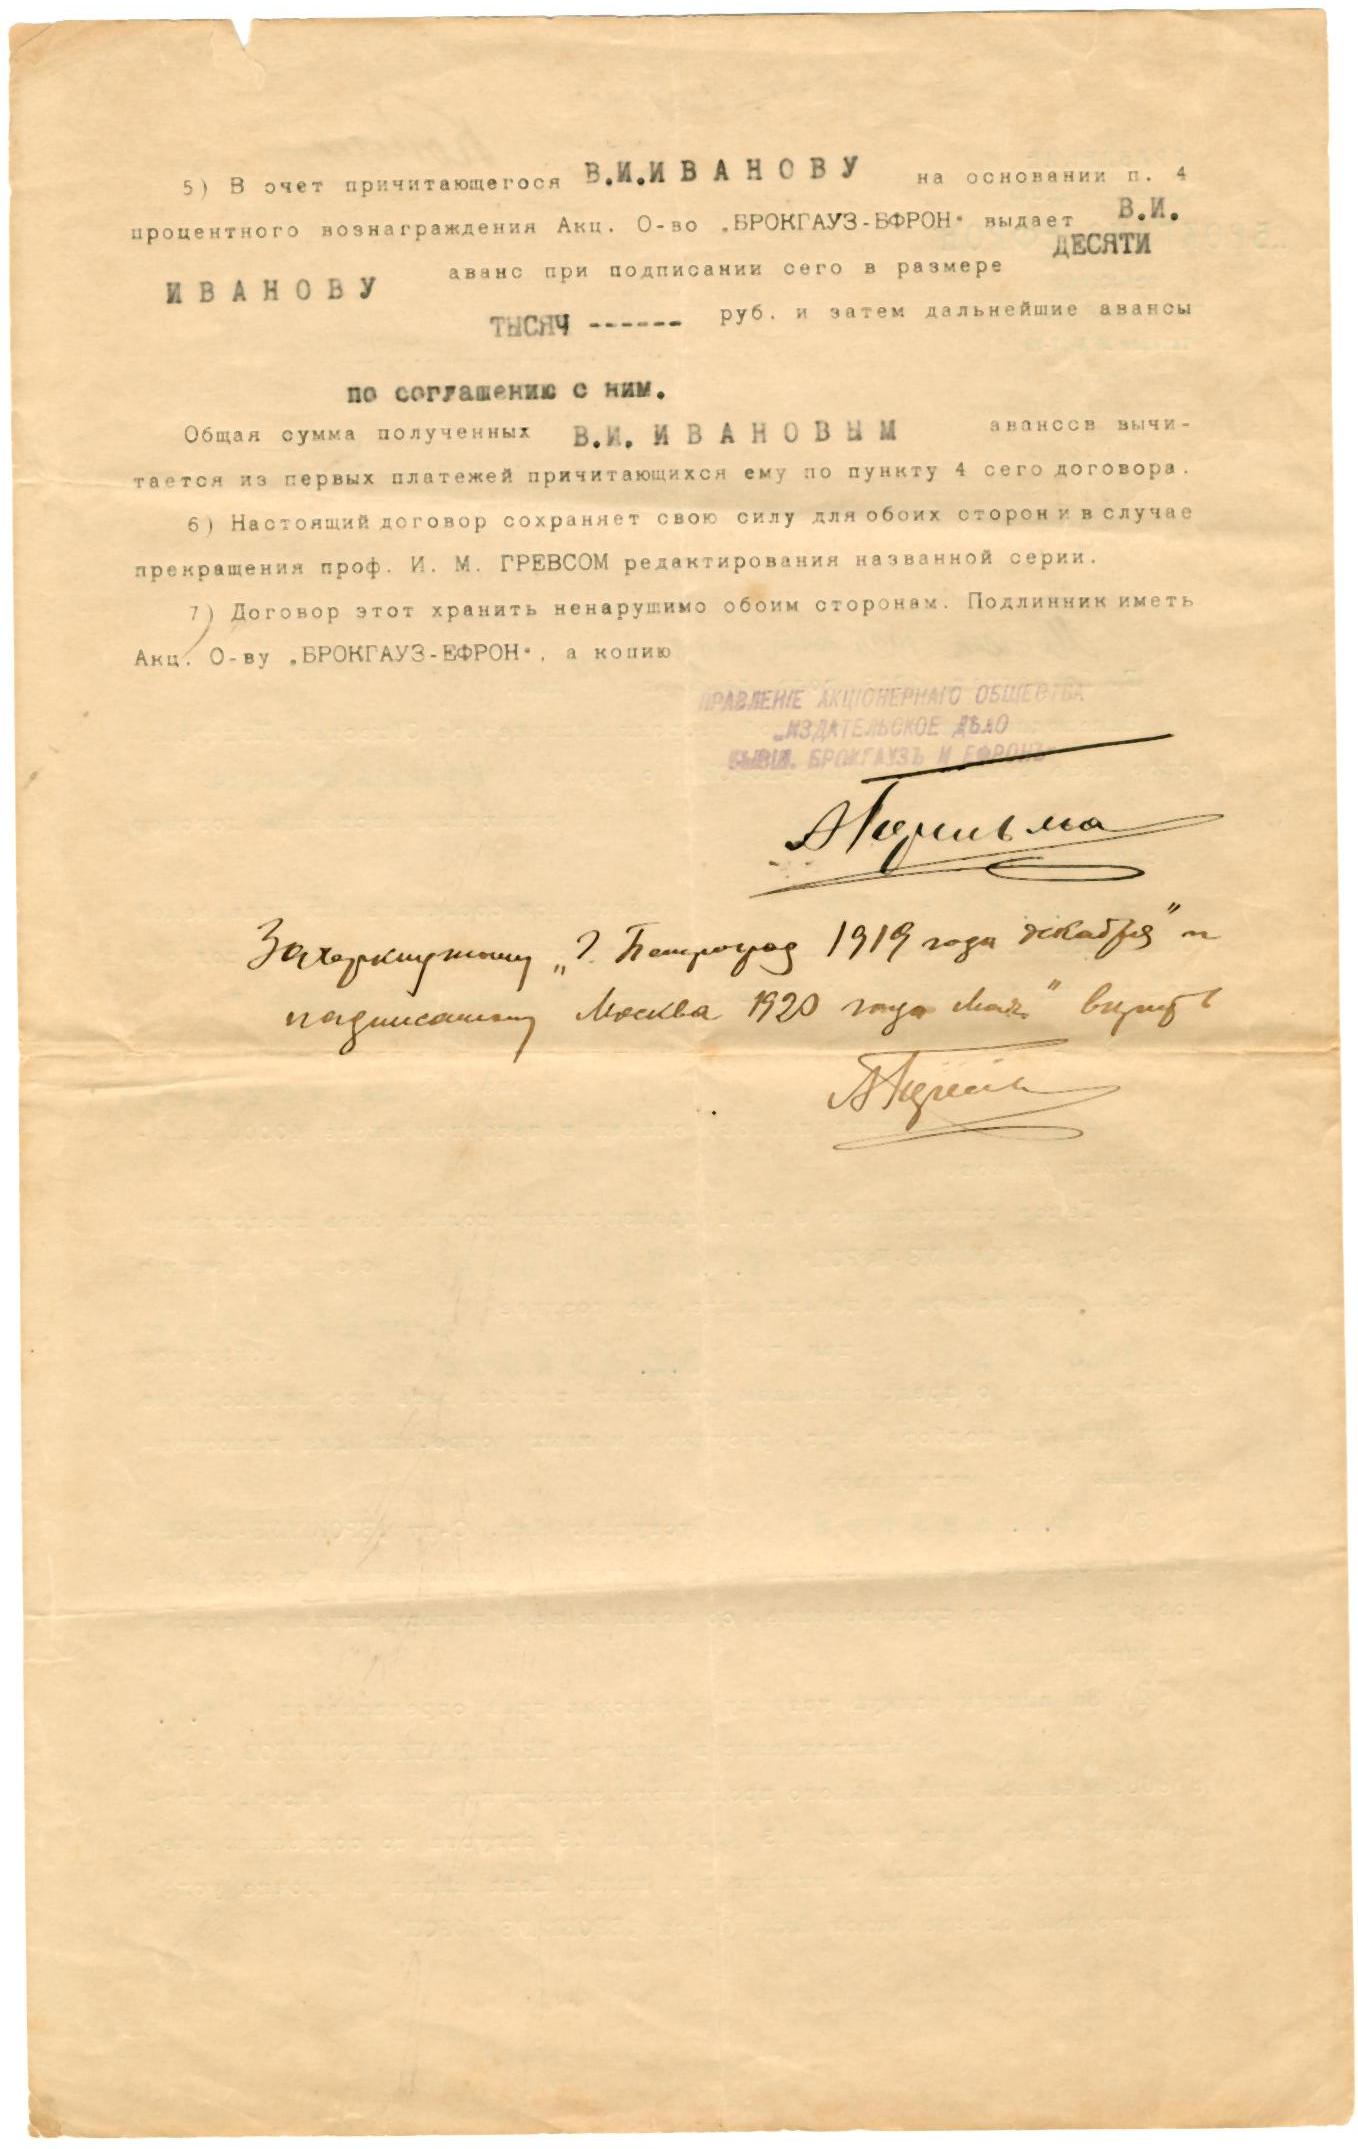 5) В счет причитающегося В.И.ИВАНОВУ на основании п. 4
процентного вознаграждения Акц. О-во „БРОКГАУЗ-ЕФРОН“ выдает В.И.
ИВАНОВУ аванс при подписании сего в размере ДЕСЯТИ
ТЫСЯЧ ------ руб. и затем дальнейшие авансы
по соглашению с ним.
Общая сумма полученных В.И. ИВАНОВЫМ авансов вычи-
тается из первых платежей причитающихся ему по пункту 4 сего договора.
6) Настоящий договор сохраняет свою силу для обоих сторон и в случае
прекращения проф. И. М. ГРЕВСОМ редактирования названной серии.
7) Договор этот хранить ненарушимо обоим сторонам. Подлинник иметь
Акц. О-ву „БРОКГАУЗ-ЕФРОН“, а копию
ПРАВЛЕНІЕ АКЦІОНЕРНАГО ОБЩЕСТВА
„ИЗДАТЕЛЬСКОЕ ДѢЛО
БЫВШ. БРОКГАУЗЪ И ЕФРОНЪ“
А Перельма
Зачеркнутому „г. Петроград 1919 года декабря“ и
подписанному Москва 1920 года Мая“ верить